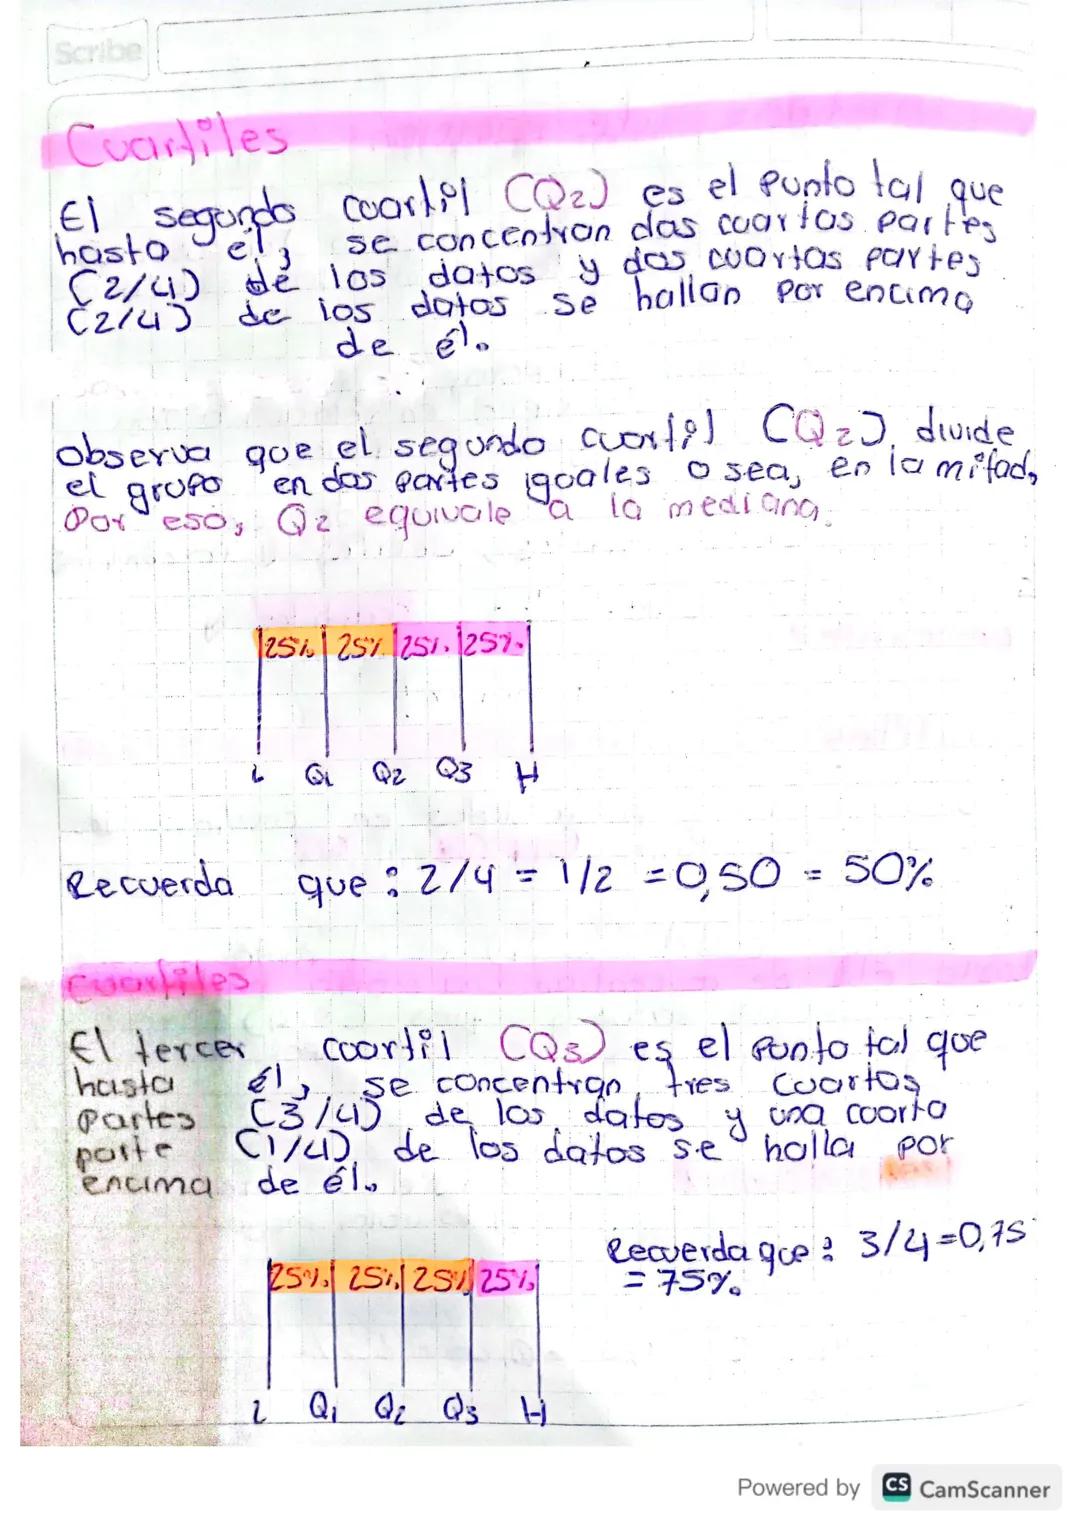 Scribe
Cuartiles
El segundo cuartil (Q2) es el punto tal que
hasta él, se concentran dos cuartas partes
(2/4) de los datos y dos cuartas partes
(2/4) de los datos se hallan por encima
de él.
Observa que el segundo cuartil (Q2), divide
el grupo en dos partes iguales o sea, en la mitad,
Por eso, Q2 equivale a la mediana.
25% 25% 25% 25%
L Q1 Q2 Q3 H
Recuerda que : 2/4 = 1/2 = 0,50 = 50%
Cuartiles
El tercer cuartil (Q3) es el punto tal que
hasta él, se concentran tres cuartas
partes (3/4) de los datos y una cuarta
parte (1/4) de los datos se halla por
encima de él.
Recuerda que : 3/4=0,75
= 75%
25% 25% 25% 25%
L Q1 Q2 Q3 H
Powered by CS CamScanner